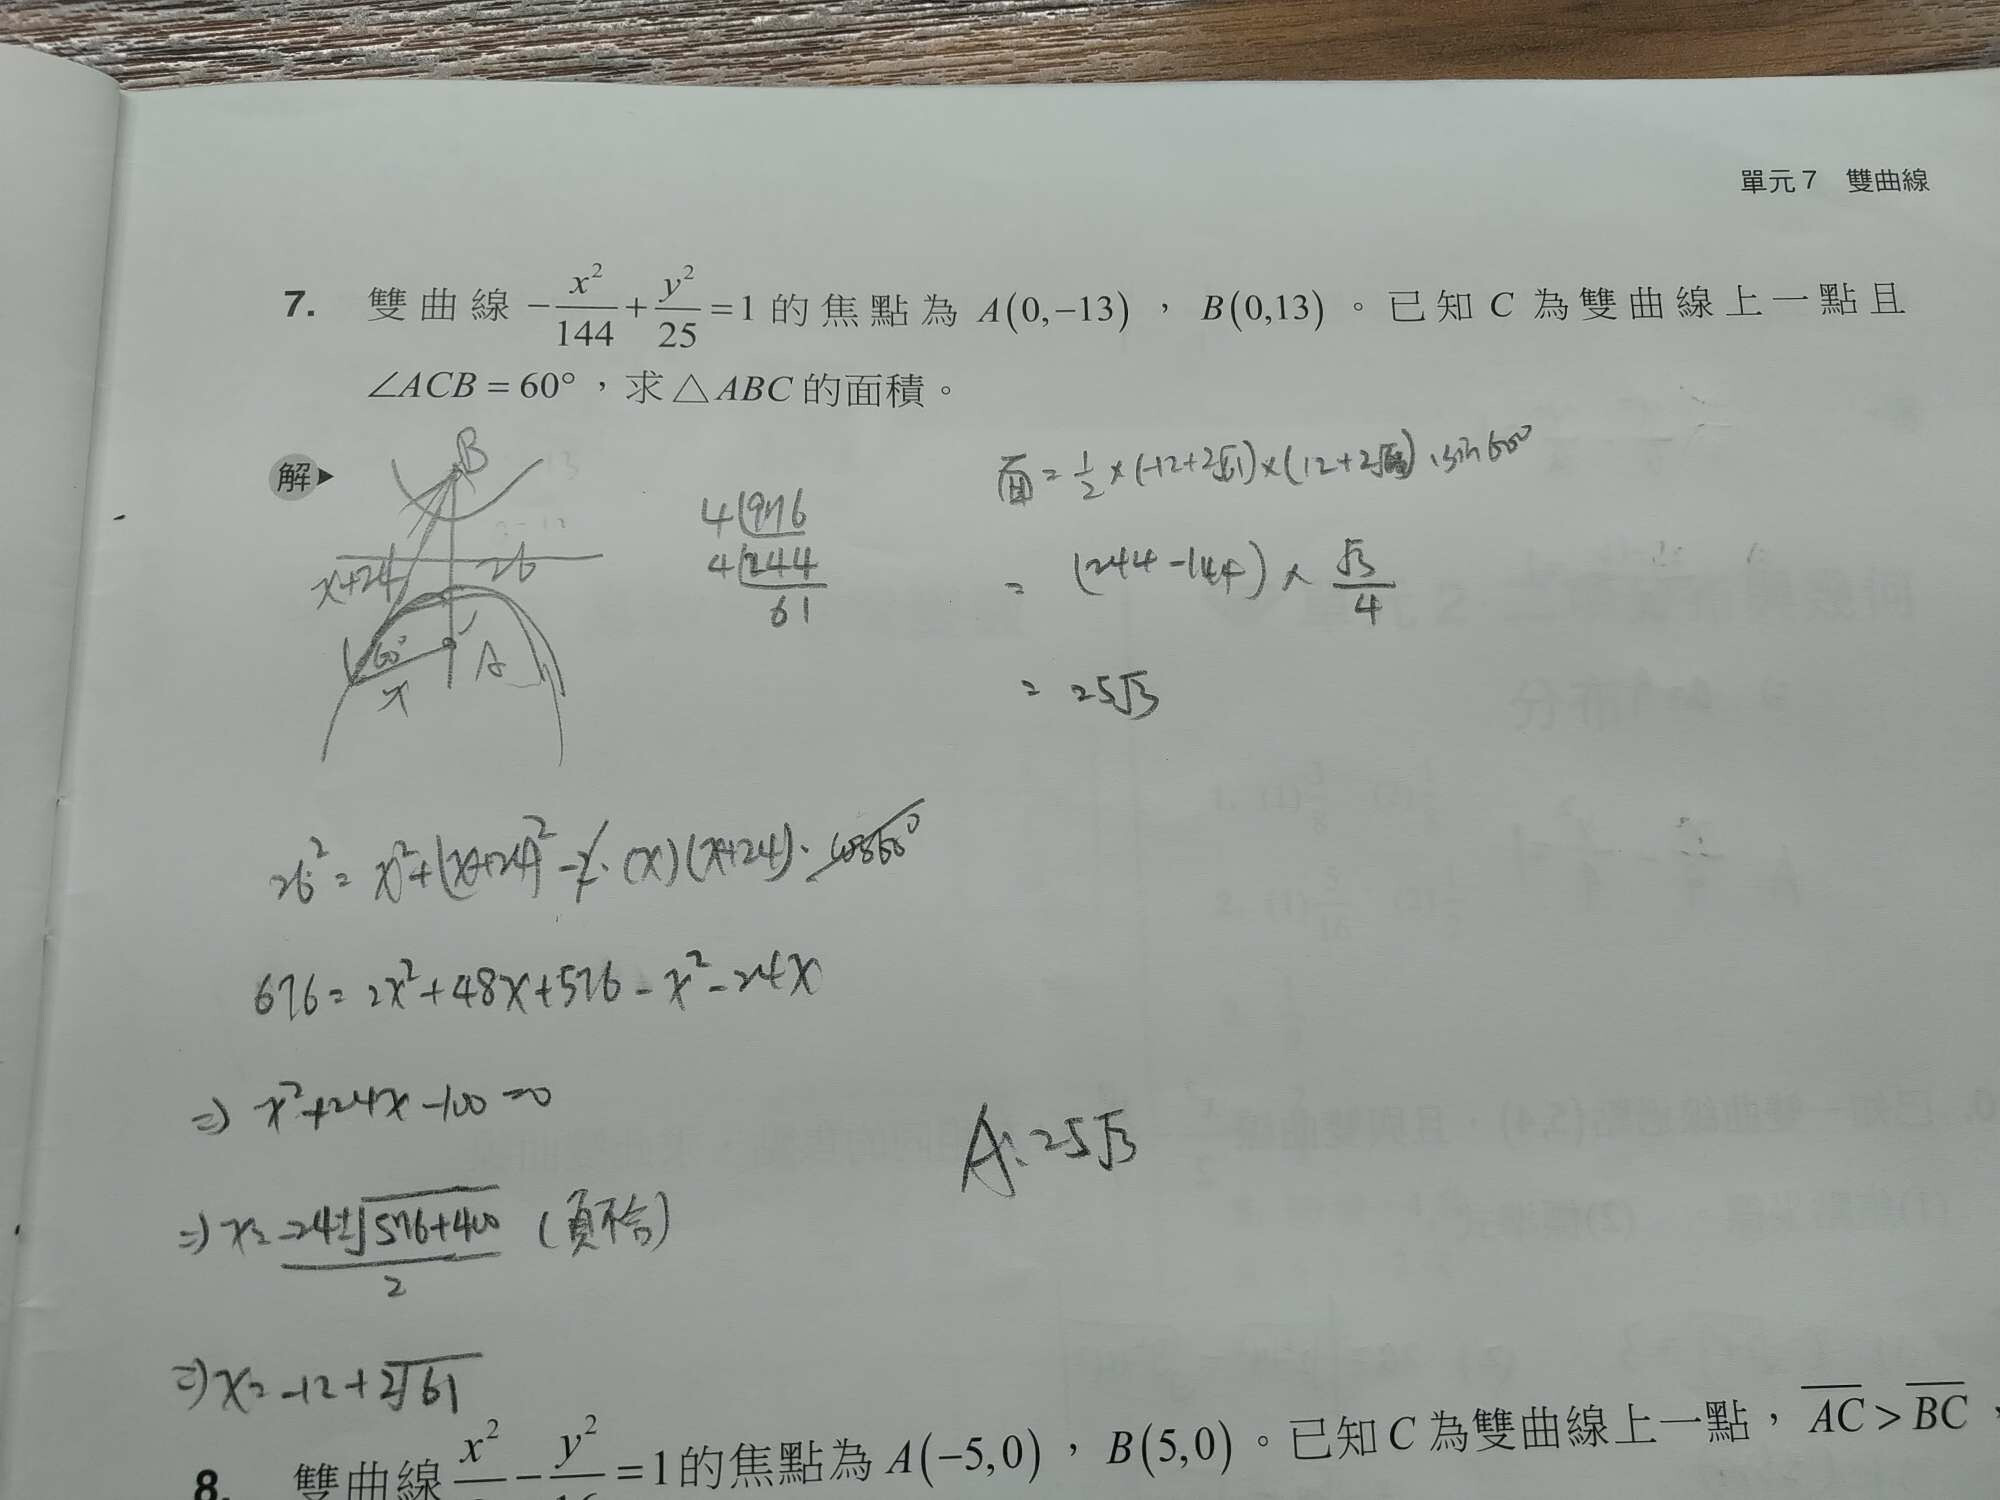 單元 7 雙曲線
7. 雙曲線 -x²/144 + y²/25 = 1 的焦點為 A(0,-13) , B(0,13) 。已知 C 為雙曲線上一點且
∠ACB = 60° , 求 △ABC 的面積。
解
B
x+24
26
60°
A
x
4 976
4 244
61
面 = 1/2 × (-12+2√61) × (12+2√61) · sin60°
= (244-144) × √3/4
= 25√3
26² = x² + (x+24)² - 2 · (x)(x+24) · cos60°
676 = 2x² + 48x + 576 - x² - 24x
⇒ x² + 24x - 100 = 0
⇒ x = (-24 ± √(576+400))/2 (負不合)
⇒ x = -12 + 2√61
A: 25√3
8. 雙曲線 = 1 的焦點為 A(-5,0) , B(5,0) 。已知 C 為雙曲線上一點, AC > BC ,